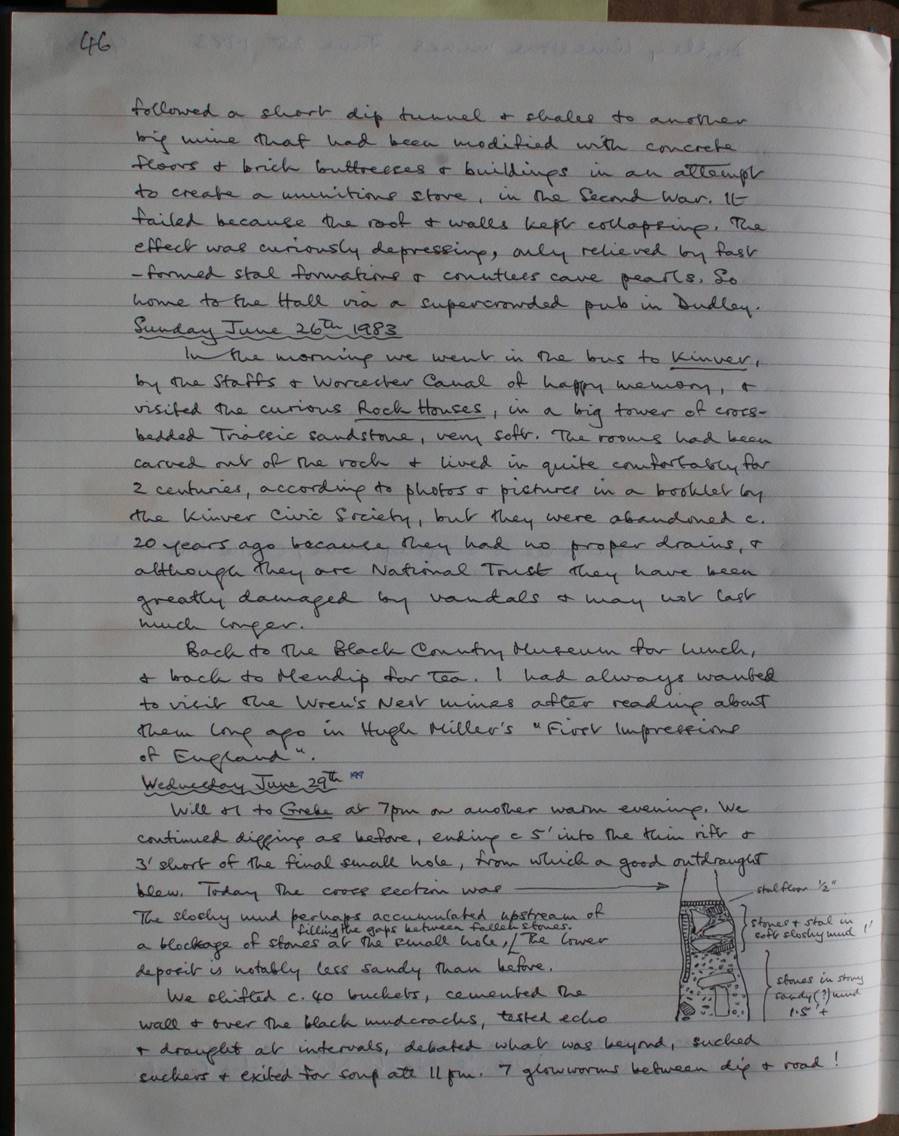 46
followed a short dip tunnel & shales to another
big mine that had been modified with concrete
floors & brick buttresses & buildings in an attempt
to create a munitions store, in the Second War. It
failed because the roof & walls kept collapsing. The
effect was curiously depressing, only relieved by fast
-formed stal formations & countless cave pearls. So
home to the Hall via a supercrowded pub in Dudley.
Sunday June 26th 1983
In the morning we went in the bus to Kinver,
by the Staffs & Worcester Canal of happy memory, &
visited the curious Rock Houses, in a big tower of cross-
bedded Triassic sandstone, very soft. The rooms had been
carved out of the rock & lived in quite comfortably for
2 centuries, according to photos & pictures in a booklet by
the Kinver Civic Society, but they were abandoned c.
20 years ago because they had no proper drains, &
although they are National Trust they have been
greatly damaged by vandals & may not last
much longer.
Back to the Black Country Museum for lunch,
& back to Mendip for Tea. I had always wanted
to visit the Wren's Nest mines after reading about
them long ago in Hugh Miller's "First Impressions
of England".
Wednesday June 29th 199
Will & I to Grebe at 7pm on another warm evening. We
continued digging as before, ending c 5' into the thin rift &
3' short of the final small hole, from which a good outdraught
blew. Today the cross section was
The sloshy mud perhaps accumulated upstream of
a blockage of stones at the small hole, filling the gaps between fallen stones. The lower
deposit is notably less sandy than before.
We shifted c. 40 buckets, cemented the
wall & over the black mudcracks, tested echo
& draught at intervals, debated what was beyond, sucked
suckers & exited for soup att 11pm. 7 glowworms between dig & road!
stal floor 1/2"
stones & stal in
soft sloshy mud 1'
stones in stony
sandy (?) mud
1.5' +